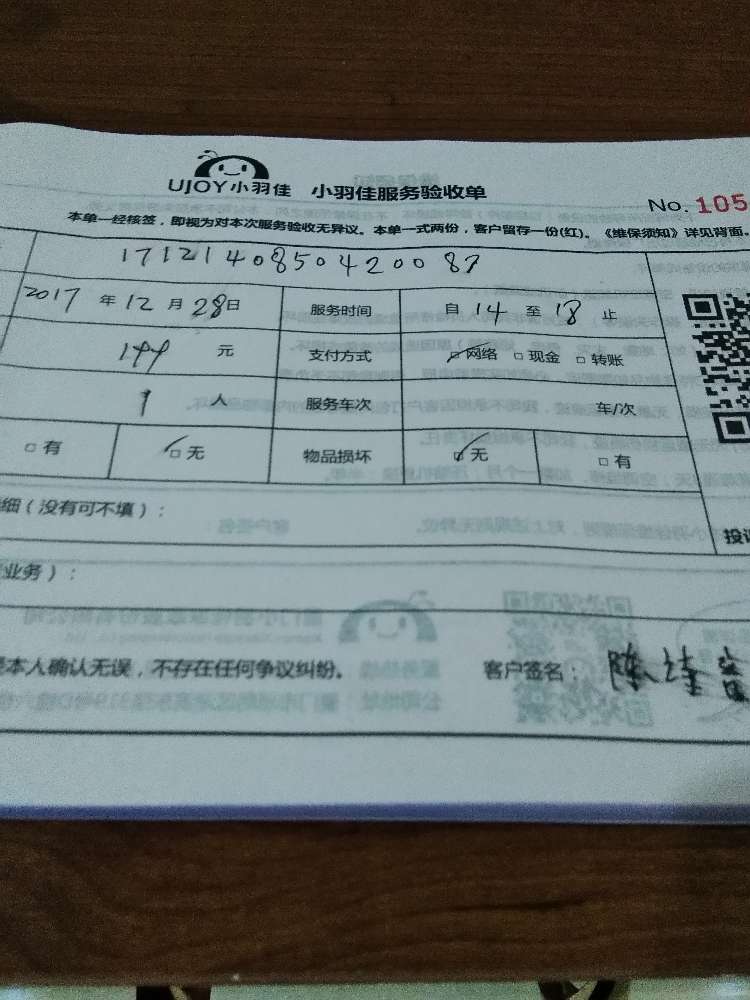 UJOY小羽佳 小羽佳服务验收单
No. 105
本单一经核签，即视为对本次服务验收无异议。本单一式两份，客户留存一份(红)。《维保须知》详见背面。
17121408504200 87
2017 年 12 月 28 日 服务时间 自 14 至 18 止
144 元 支付方式 □网络 □现金 □转账
1 人 服务车次 年/次
□有 □无 物品损坏 □无 □有
细（没有可不填）：
投
业务）：
本人确认无误，不存在任何争议纠纷。 客户签名：陈